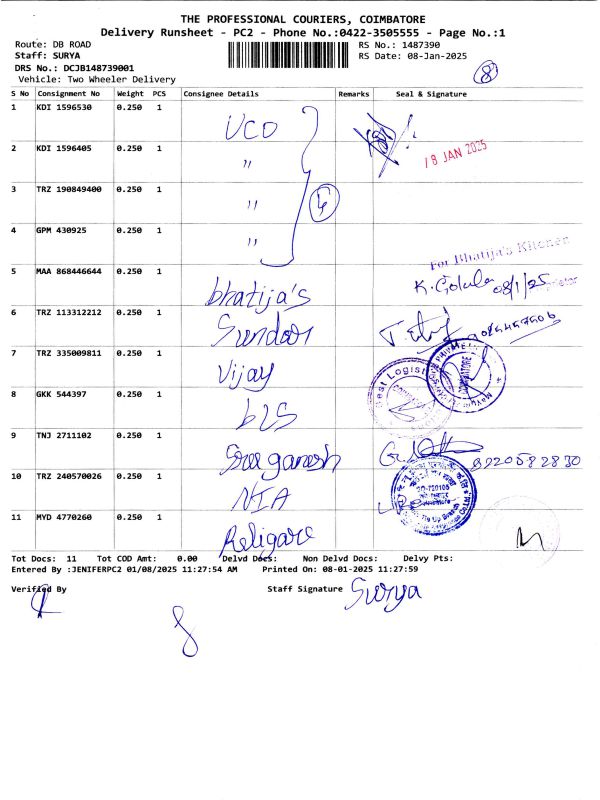 THE PROFESSIONAL COURIERS, COIMBATORE
Delivery Runsheet - PC2 - Phone No.:0422-3505555 - Page No.:1
Route: DB ROAD RS No.: 1487390
Staff: SURYA RS Date: 08-Jan-2025
DRS No.: DCJB148739001
Vehicle: Two Wheeler Delivery
8
S No Consignment No Weight PCS Consignee Details Remarks Seal & Signature
1 KDI 1596530 0.250 1 UCO
2 KDI 1596405 0.250 1 " 8 JAN 2025
3 TRZ 190849400 0.250 1 "
4 GPM 430925 0.250 1 "
For Bhatija's Kitchen
5 MAA 868446644 0.250 1 bhatija's K. Gokula 08/1/25
6 TRZ 113312212 0.250 1
7 TRZ 335009811 0.250 1 Vijay
8 GKK 544397 0.250 1
9 TNJ 2711102 0.250 1 Sree ganesh
10 TRZ 240570026 0.250 1 NIA
11 MYD 4770260 0.250 1 Religare
Tot Docs: 11 Tot COD Amt: 0.00 Delvd Docs: Non Delvd Docs: Delvy Pts:
Entered By :JENIFERPC2 01/08/2025 11:27:54 AM Printed On: 08-01-2025 11:27:59
Verified By Staff Signature Surya